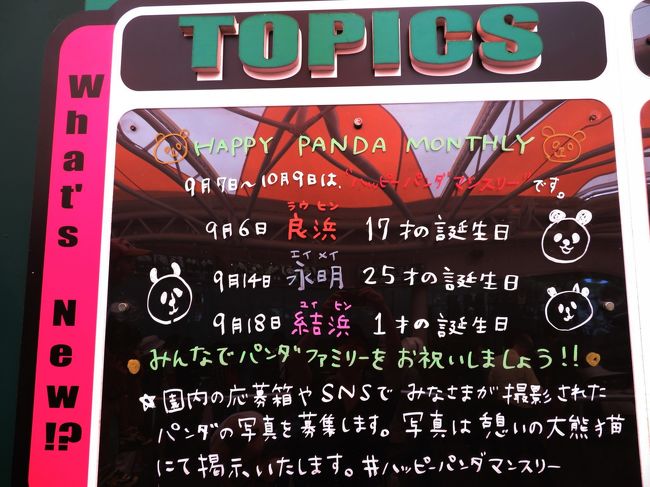 TOPICS
What's New!?
HAPPY PANDA MONTHLY
9月7日～10月9日は、"ハッピーパンダマンスリー"です。
ラウヒン
9月6日 良浜 17才の誕生日
エイメイ
9月14日 永明 25才の誕生日
ユイヒン
9月18日 結浜 1才の誕生日
みんなでパンダファミリーをお祝いしましょう!!
☆園内の応募箱やSNSでみなさまが撮影された
パンダの写真を募集します。写真は憩いの大熊猫
にて掲示いたします。#ハッピーパンダマンスリー